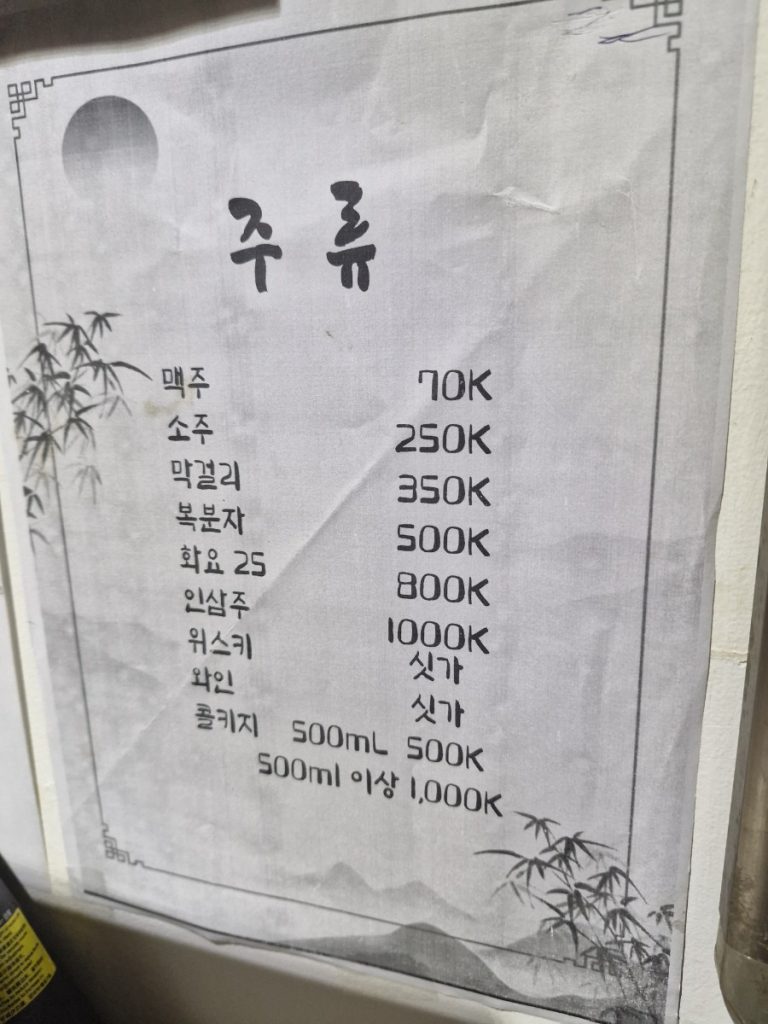 주 류
맥주 70K
소주 250K
막걸리 350K
복분자 500K
화요 25 800K
인삼주 1000K
위스키 싯가
와인 싯가
콜키지 500mL 500K
500ml 이상 1,000K